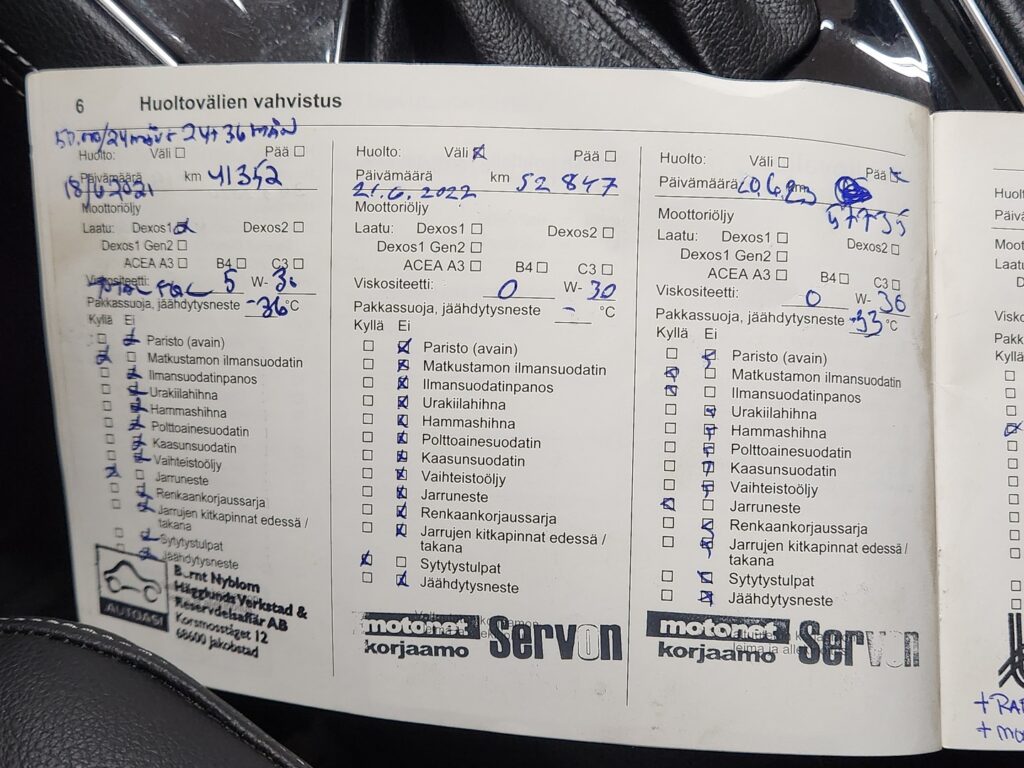 6 Huoltovälien vahvistus
24+36 MÅN
Huolto: Väli Pää
Päivämäärä km 41352
18/6 2021
Moottoriöljy
Laatu: Dexos1 Dexos2
Dexos1 Gen2
ACEA A3 B4 C3
Viskositeetti: 5 W- 30
TOTAL
Pakkassuoja, jäähdytysneste -36 °C
Kyllä Ei
Paristo (avain)
Matkustamon ilmansuodatin
Ilmansuodatinpanos
Urakiilahihna
Hammashihna
Polttoainesuodatin
Kaasunsuodatin
Vaihteistoöljy
Jarruneste
Renkaankorjaussarja
Jarrujen kitkapinnat edessä /
takana
Sytytystulpat
Jäähdytysneste
AUTOASI
Nyblom
Hägglunds Verkstad &
Reservdelsaffär AB
Korsmosstäget 12
68600 Jakobstad
Huolto: Väli Pää
Päivämäärä km 52 847
21.6.2022
Moottoriöljy
Laatu: Dexos1 Dexos2
Dexos1 Gen2
ACEA A3 B4 C3
Viskositeetti: 0 W- 30
Pakkassuoja, jäähdytysneste - °C
Kyllä Ei
Paristo (avain)
Matkustamon ilmansuodatin
Ilmansuodatinpanos
Urakiilahihna
Hammashihna
Polttoainesuodatin
Kaasunsuodatin
Vaihteistoöljy
Jarruneste
Renkaankorjaussarja
Jarrujen kitkapinnat edessä /
takana
Sytytystulpat
Jäähdytysneste
motonet
korjaamo Servon
Huolto: Väli Pää
Päivämäärä 20.6.23 km
57735
Moottoriöljy
Laatu: Dexos1 Dexos2
Dexos1 Gen2
ACEA A3 B4 C3
Viskositeetti: 0 W- 30
Pakkassuoja, jäähdytysneste -33 °C
Kyllä Ei
Paristo (avain)
Matkustamon ilmansuodatin
Ilmansuodatinpanos
Urakiilahihna
Hammashihna
Polttoainesuodatin
Kaasunsuodatin
Vaihteistoöljy
Jarruneste
Renkaankorjaussarja
Jarrujen kitkapinnat edessä /
takana
Sytytystulpat
Jäähdytysneste
motonet
korjaamo Servon
leima ja